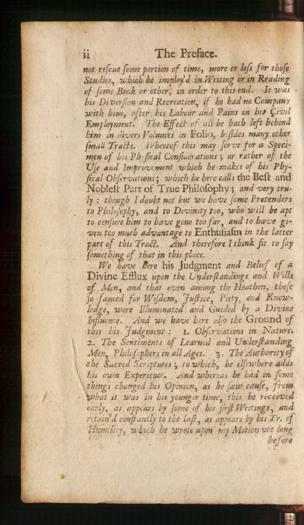 ii The Preface.
not rescue some portion of time, more or less for those
Studies, which he imploy'd in Writing or in Reading
of some Book or other, in order to this end. It was
his Diversion and Recreation, if he had no Company
with him, after his Labour and Pains in his Civil
Employment. The Effect of all he hath left behind
him in divers Volumes in Folio, besides many other
small Tracts. Whereof this may serve for a Speci-
men of his Physical Considerations; or rather of the
Use and Improvement which he makes of his Phy-
sical Observations; which he here calls the Best and
Noblest Part of True Philosophy; and very tru-
ly: though I doubt not but we have some Pretenders
to Philosophy, and to Divinity too, who will be apt
to censure him to have gone too far, and to have gi-
ven too much advantage to Enthusiasm in the latter
part of this Tract. And therefore I think fit to say
something of that in this place.
We have here his Judgment and Belief of a
Divine Efflux upon the Understandings and Wills
of Men, and that even among the Heathen, those
so famed for Wisdom, Justice, Piety, and Know-
ledge, were Illuminated and Guided by a Divine
Influence. And we have here also the Ground of
this his Judgment: 1. Observations in Nature.
2. The Sentiments of Learned and Understanding
Men, Philosophers in all Ages. 3. The Authority of
the Sacred Scriptures; to which, he elsewhere adds
his own Experience. And whereas he had in some
things changed his Opinion, as he saw cause, from
what it was in his younger time, this he received
early, as appears by some of his first Writings, and
retain'd constantly to the last, as appears by his Tr. of
Humility, which he wrote upon my Motion not long
before